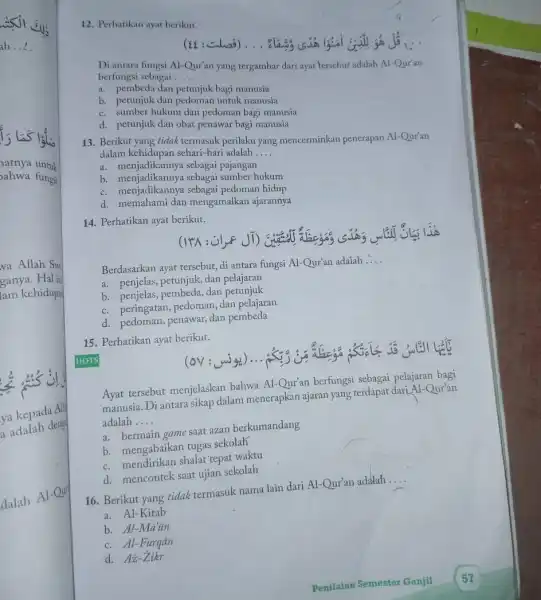 12. Perhatikan ayat berikut.
... قُلْ هُوَ لِلَّذِيْنَ اٰمَنُوْا هُدًى وَّشِفَاۤءٌ ... (فصلت: ٤٤)
Di antara fungsi Al-Qur'an yang tergambar dari ayat tersebut adalah Al-Qur'an
berfungsi sebagai . . . .
a. pembeda dan petunjuk bagi manusia
b. petunjuk dan pedoman untuk manusia
c. sumber hukum dan pedoman bagi manusia
d. petunjuk dan obat penawar bagi manusia
13. Berikut yang tidak termasuk perilaku yang mencerminkan penerapan Al-Qur'an
dalam kehidupan sehari-hari adalah . . . .
a. menjadikannya sebagai pajangan
b. menjadikannya sebagai sumber hukum
c. menjadikannya sebagai pedoman hidup
d. memahami dan mengamalkan ajarannya
14. Perhatikan ayat berikut.
هٰذَا بَيَانٌ لِّلنَّاسِ وَهُدًى وَّمَوْعِظَةٌ لِّلْمُتَّقِيْنَ (آل عمران: ١٣٨)
Berdasarkan ayat tersebut, di antara fungsi Al-Qur'an adalah . . . .
a. penjelas, petunjuk, dan pelajaran
b. penjelas, pembeda, dan petunjuk
c. peringatan, pedoman, dan pelajaran
d. pedoman, penawar, dan pembeda
15. Perhatikan ayat berikut.
HOTS
يٰٓاَيُّهَا النَّاسُ قَدْ جَاۤءَتْكُمْ مَّوْعِظَةٌ مِّنْ رَّبِّكُمْ ... (يونس: ٥٧)
Ayat tersebut menjelaskan bahwa Al-Qur'an berfungsi sebagai pelajaran bagi
manusia. Di antara sikap dalam menerapkan ajaran yang terdapat dari Al-Qur'an
adalah . . . .
a. bermain game saat azan berkumandang
b. mengabaikan tugas sekolah
c. mendirikan shalat tepat waktu
d. mencontek saat ujian sekolah
16. Berikut yang tidak termasuk nama lain dari Al-Qur'an adalah . . . .
a. Al-Kitab
b. Al-Mā'ūn
c. Al-Furqān
d. Aż-Żikr
Penilaian Semester Ganjil
57